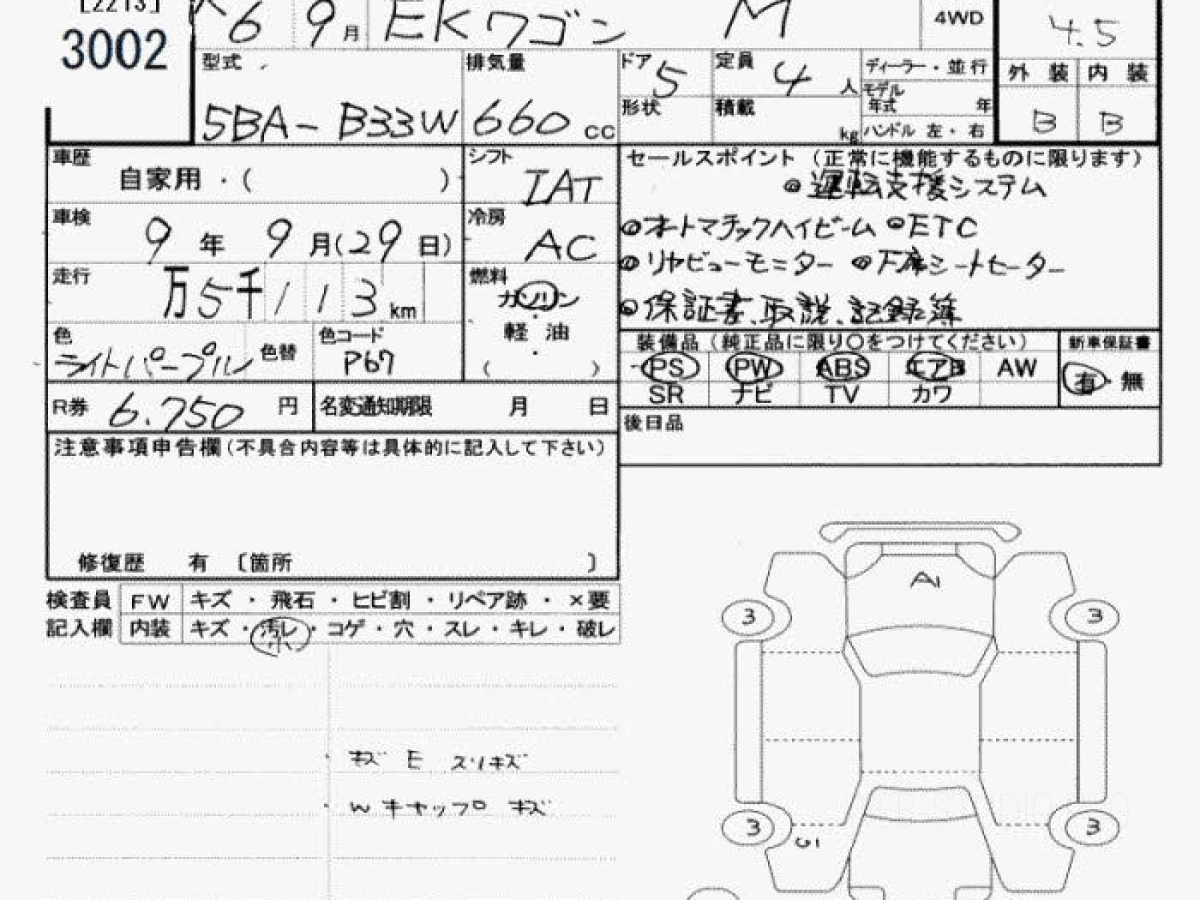 [2213]
3002
R6 9月 EKワゴン M 4WD
4.5
型式 5BA-B33W
排気量 660 cc
ドア 5 定員 4人
形状 積載 kg
ディーラー・並行
モデル年式 年
ハンドル 左・右
外装 内装
B B
車歴 自家用・( )
シフト IAT
車検 9年 9月(29日)
冷房 AC
走行 万5千113km
燃料 ガソリン
軽・油
・
( )
色 ライトパープル 色替
色コード P67
R券 6.750円
名変通知期限 月 日
セールスポイント (正常に機能するものに限ります)
◎運転支援システム
◎オートマチックハイビーム ◎ETC
◎リヤビューモニター ◎下席シートヒーター
◎保証書、取説、記録簿
装備品 (純正品に限り○をつけてください) 新車保証書
PS PW ABS エアB AW 有・無
SR ナビ TV カワ
後日品
注意事項申告欄(不具合内容等は具体的に記入して下さい)
修復歴 有 〔箇所 〕
検査員 FW キズ・飛石・ヒビ割・リペア跡・×要
記入欄 内装 キズ・汚レ・コゲ・穴・スレ・キレ・破レ
小
・キズ E スリキズ
・Wキャップ キズ
A1
3 3
3 3